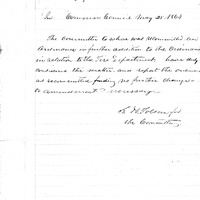 In Common Council May 21. 1863
The Committee to whom was recommitted an
Ordinance in further addition to the Ordinance
in relation to the Fire Department have duly
considered the matter and report the ordinance
as recommitted finding no further changes
or amendment necessary.
the Committee